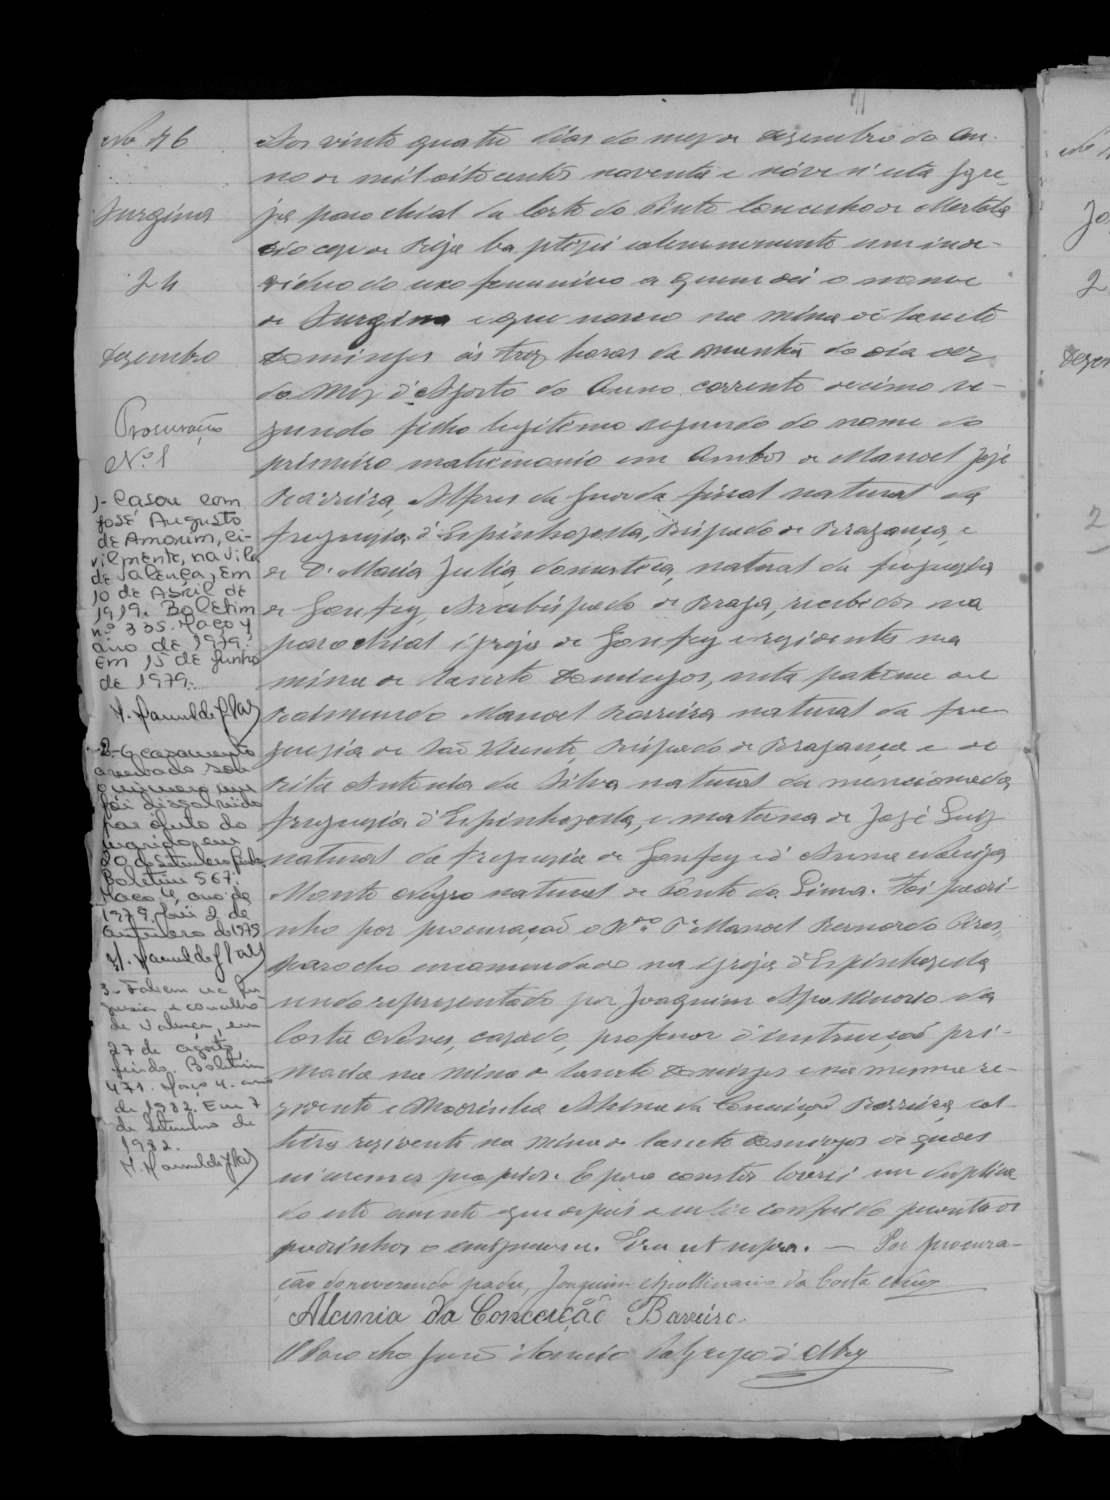 No 46
Jurgina
24
Dezembro
Procuração
N.º 1
1- Casou com
José Augusto
de Amorim, ci-
vilmente, na vila
de Valença, em
10 de Abril de
1919. Boletim
n.º 335. Maço 4
ano de 1979.
Em 15 de Junho
de 1979.
2- O casamento
averbado sob
o numero um
foi dissolvido
por óbito do
marido, em
20 de Setembro
Boletim 567.
Maço 4, ano de
1979. Em 2 de
Outubro de 1979
3- Faleceu na fre-
guesia e concelho
de Valença, em
27 de agosto,
findo. Boletim
471. Maço 4. ano
de 1982. Em 7
de Setembro de
1982.
Aos vinte quatro dias do mez de dezembro do an-
no de mil oitocentos noventa e nóve n'esta Igre-
ja parochial da Corte do Pinto Concelho de Mertola
diocese de Beja baptizei solemnemente um indi-
viduo do sexo femenino a quem dei o nome
de Jurgina e que nasceu na mina de Sancto
Domingos ás trez horas da manhã do dia dez
do mez d'Agosto do anno corrente decimo se-
gundo filho legitimo segundo do nome do
primeiro matrimonio em ambos de Manoel José
Barreira, Alferes da Guarda fiscal natural da
freguesia d'Espinhosella, Bispado de Bragança, e
de D. Maria Julia, domestica, natural da freguesia
de Gonfey, Arcebispado de Braga, recebidos na
parochial igreja de Gonfey e residentes na
mina de Sancto Domingos, neta paterna de
Raimundo Manoel Barreira natural da fre-
guesia de São Vicente, Bispado de Bragança e de
Rita Antonia da Silva natural da mencionada
freguesia d'Espinhosella, e materna de José Luiz
natural da freguesia de Gonfey e d'Anna
Monte Negro natural de Ponte do Lima. Foi padri-
nho por procuração o Manoel Bernardo Pires,
parocho encommendado na igreja d'Espinhosella
sendo representado por Joaquim Apollinario da
Costa Neves, casado, professor d'instrucção pri-
maria na mina de Sancto Domingos e na mesma re-
sidente e Madrinha Alcina da Conceição Barreira, sol-
teira residente na mina de Sancto Domingos os quaes
sei serem os proprios. E para constar lavrei em duplica-
do este assento que depois de lido e conferido perante os
padrinhos o assignaram. Era ut supra. — Por procura-
ção do reverendo padre, Joaquim Apollinario da Costa Neves
Alcinia da Conceição Barreira
O Parocho